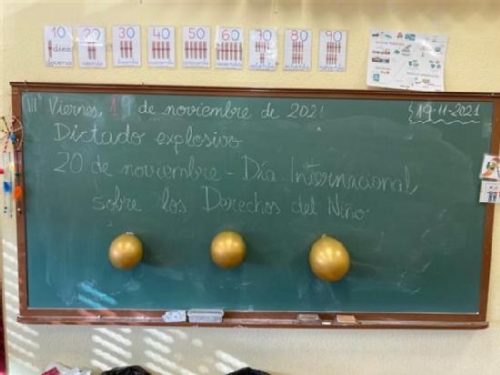 10 20 30 40 50 60 70 80 90
Viernes, 19 de noviembre de 2021
19-11-2021
Dictado explosivo
20 de noviembre - Día Internacional
sobre los Derechos del Niño